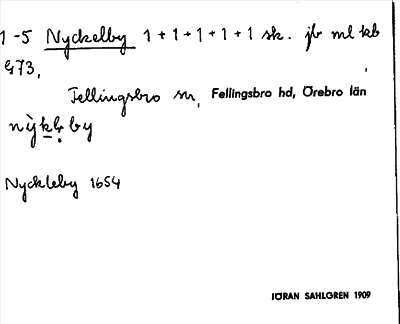 1-5 Nyckelby 1+1+1+1+1 sk. jb ml kb
G73,
Fellingsbro sn, Fellingsbro hd, Örebro län
Nyckleby 1654
JÖRAN SAHLGREN 1909